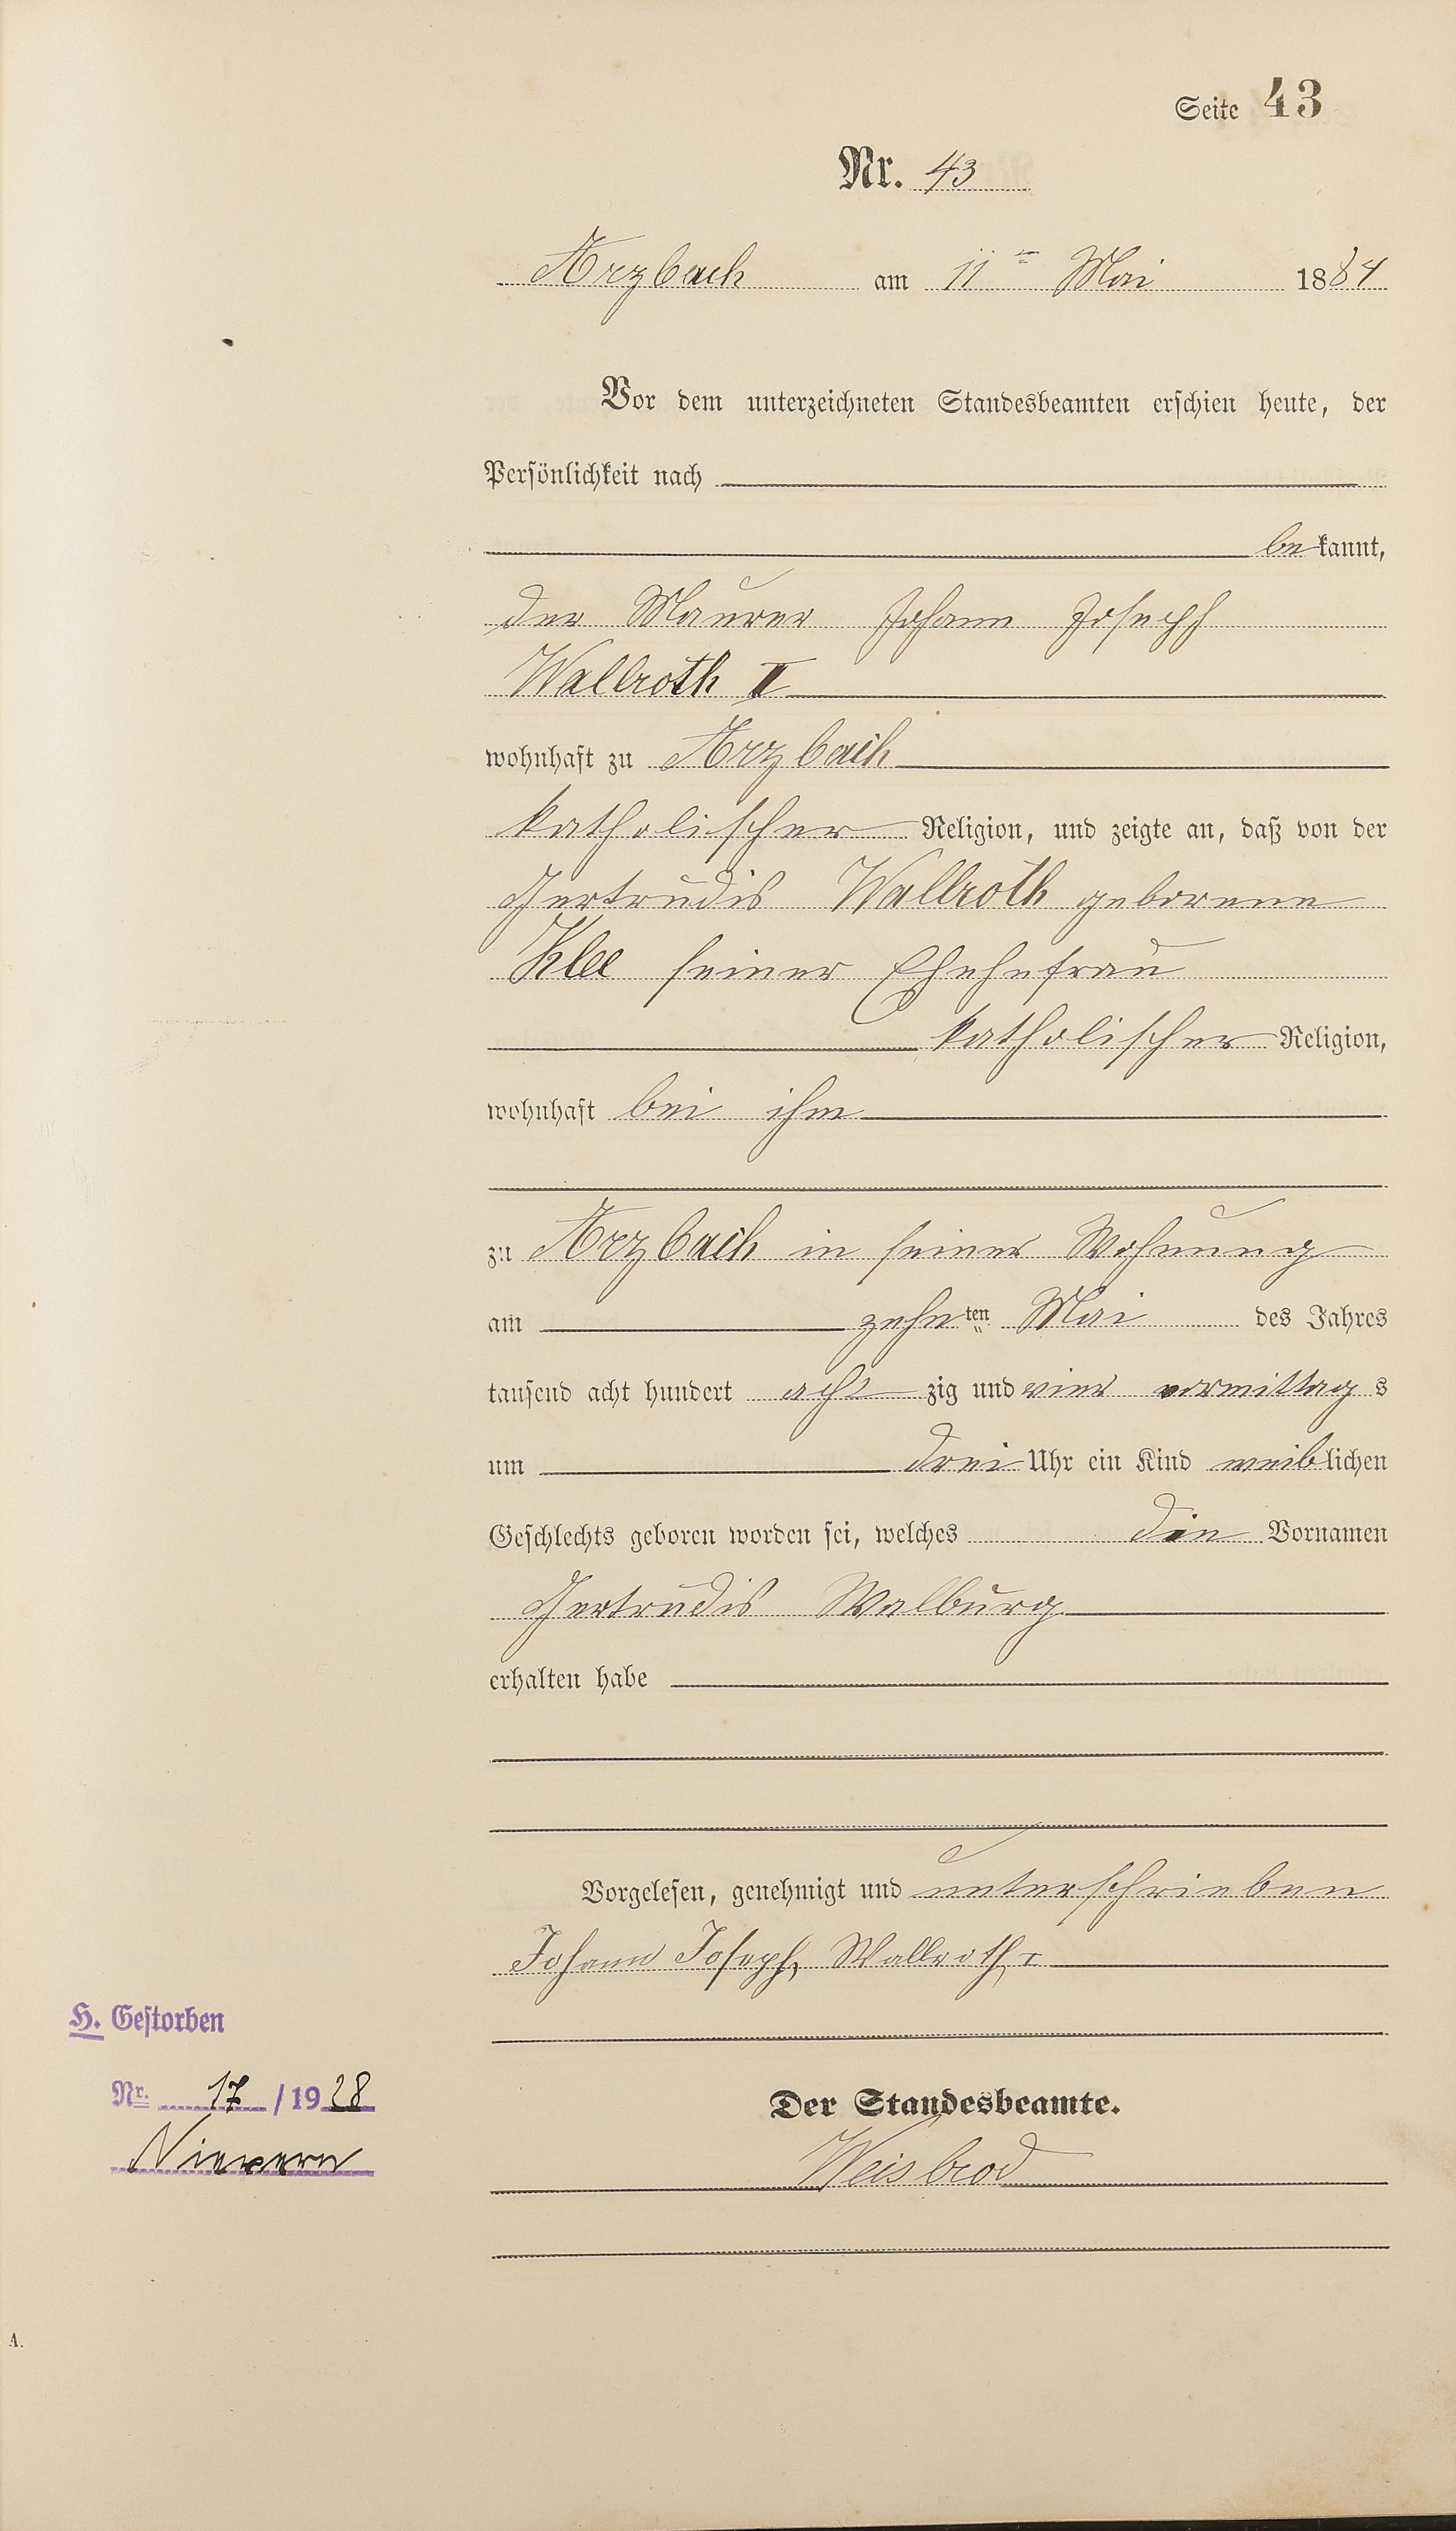 Seite 43
Nr. 43
Arzbach am 11ten Mai 1884
Vor dem unterzeichneten Standesbeamten erschien heute, der
Persönlichkeit nach
bekannt,
der Maurer Johann Joseph
Wallroth II
wohnhaft zu Arzbach
katholischer Religion, und zeigte an, daß von der
Gertrudis Wallroth geborene
Klee seiner Ehehefrau
katholischer Religion,
wohnhaft bei ihm
zu Arzbach in seiner Wohnung
am zehnten Mai des Jahres
tausend acht hundert achtzig und vier vormittags
um drei Uhr ein Kind weiblichen
Geschlechts geboren worden sei, welches die Vornamen
Gertrudis Walburg
erhalten habe
Vorgelesen, genehmigt und unterschrieben
Johann Joseph, Wallroth
H. Gestorben
Nr. 17 / 1928
Nievern
Der Standesbeamte.
Weisbrod
A.